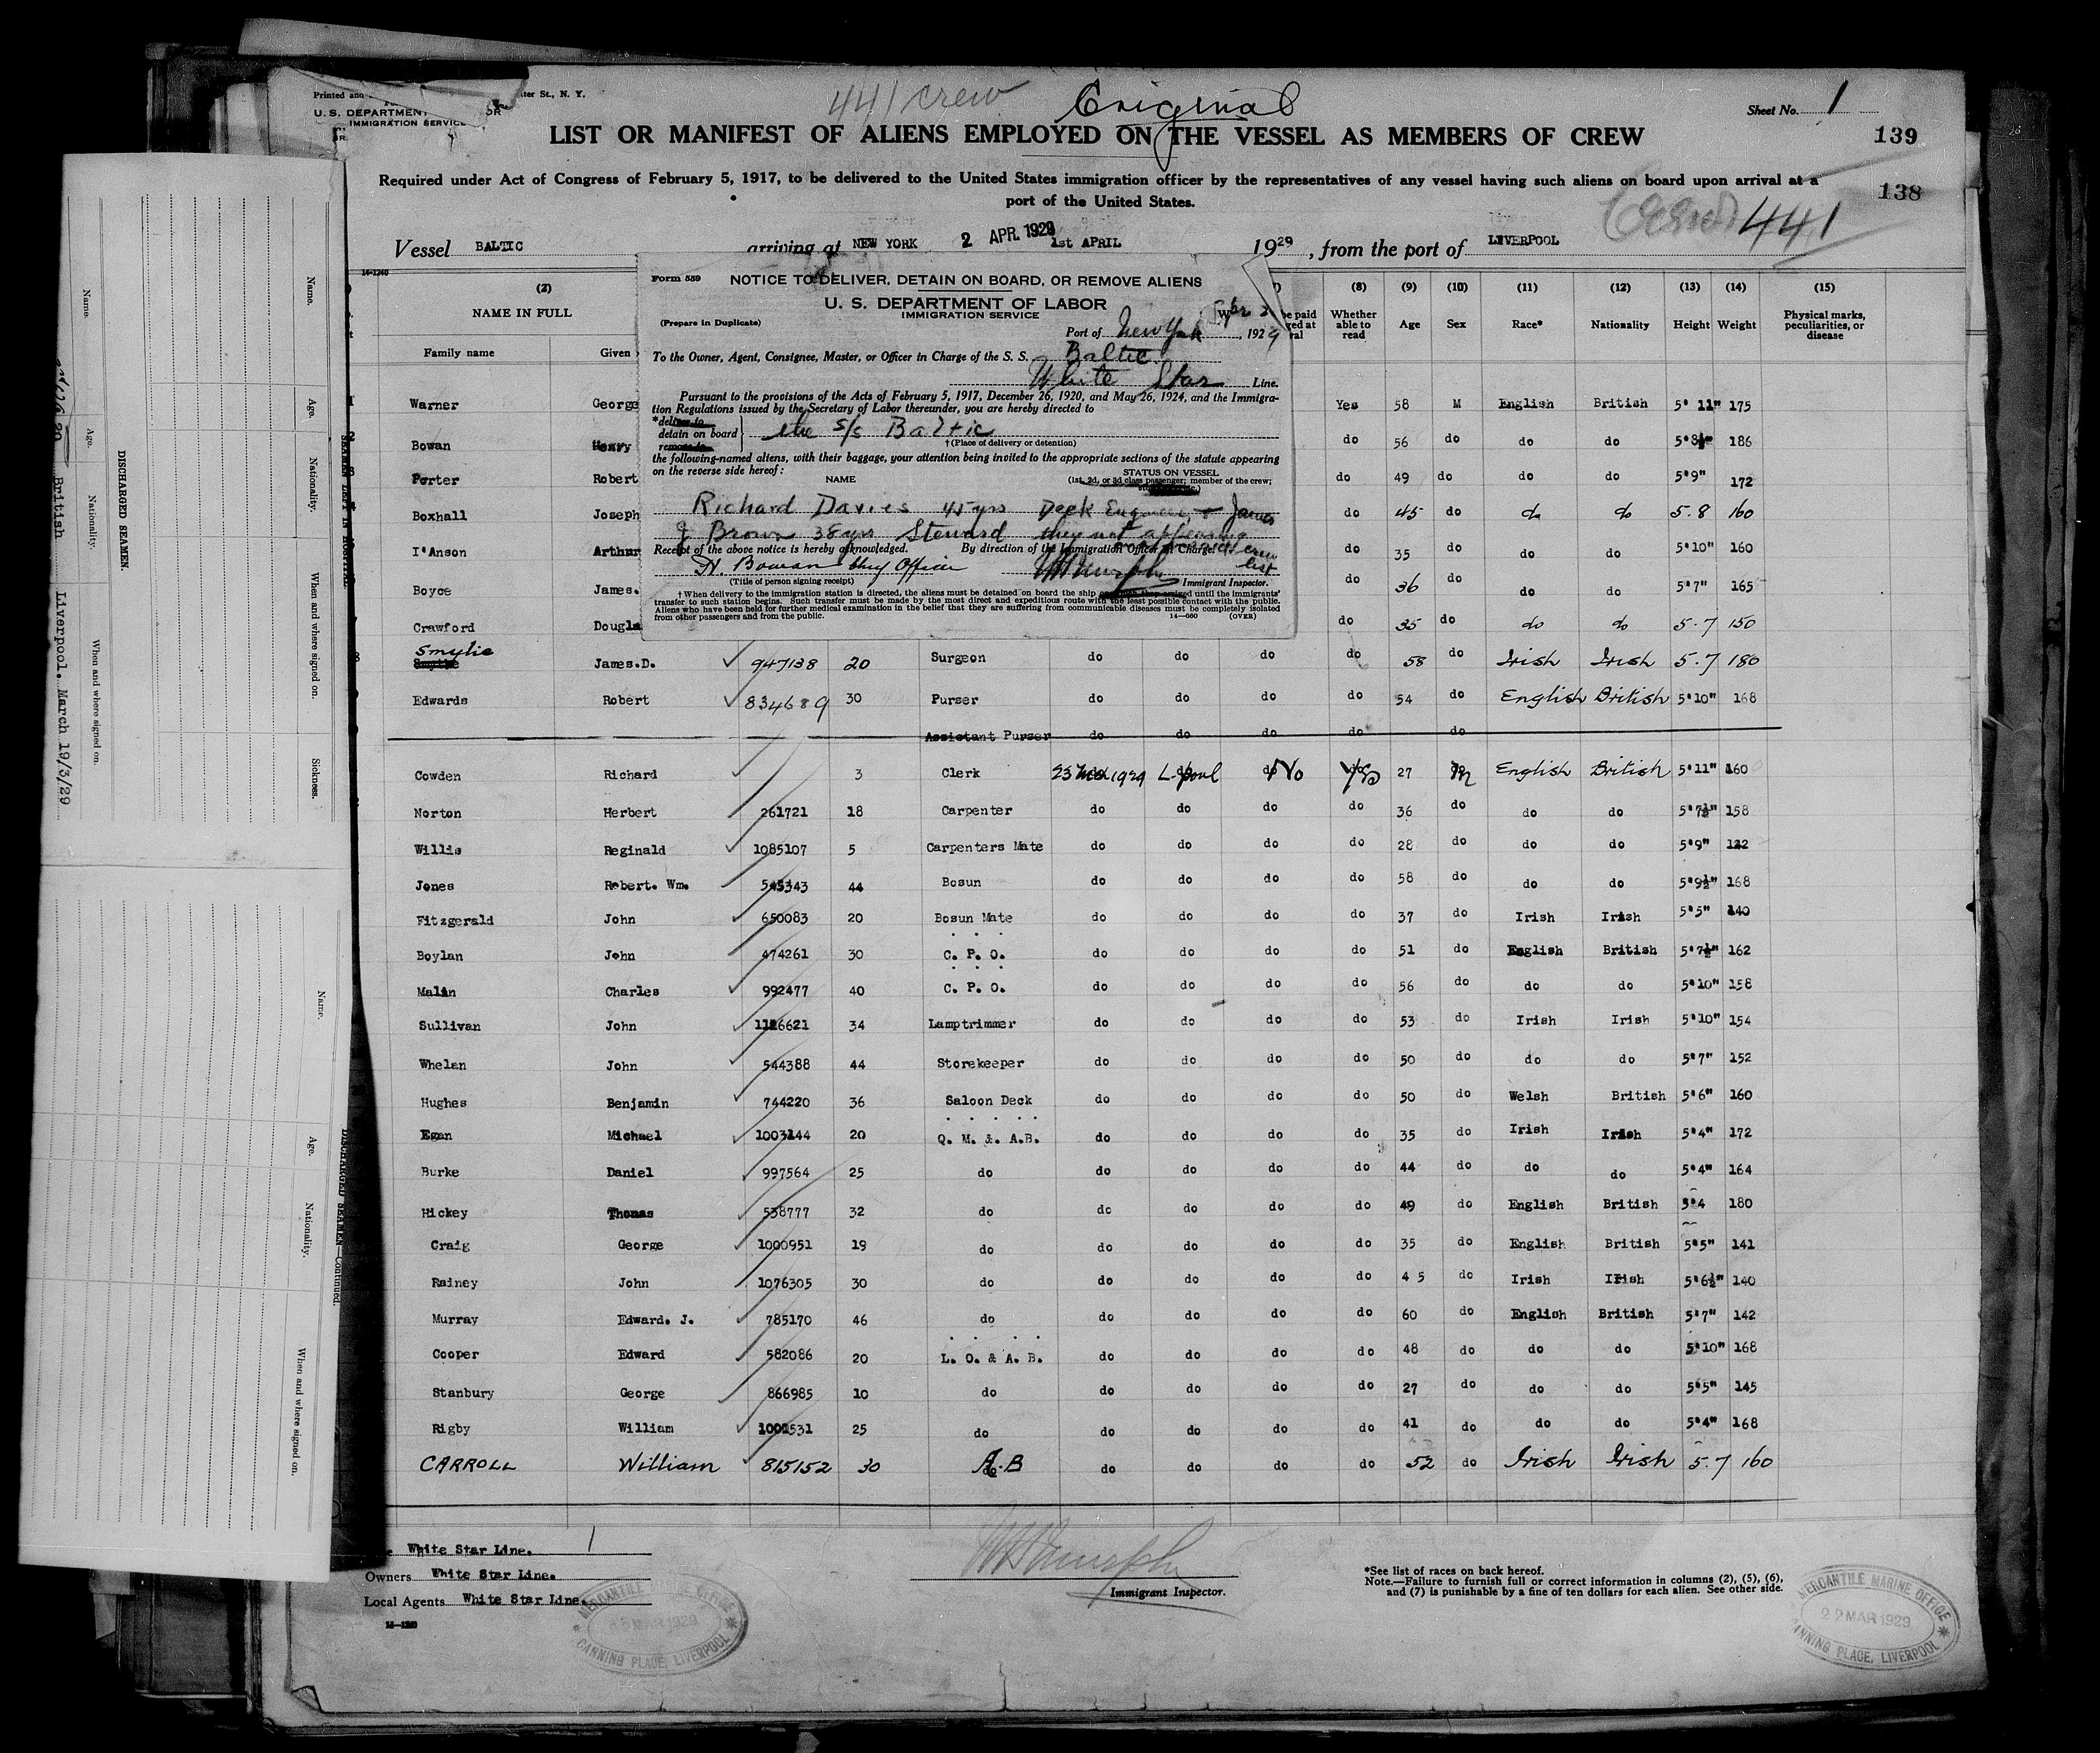 Printed and ter St., N. Y.
441 crew Original
U. S. DEPARTMENT OR
IMMIGRATION SERVICE
Sheet No. 1
LIST OR MANIFEST OF ALIENS EMPLOYED ON THE VESSEL AS MEMBERS OF CREW
139
Required under Act of Congress of February 5, 1917, to be delivered to the United States immigration officer by the representatives of any vessel having such aliens on board upon arrival at a
port of the United States.
138
441
Vessel BALTIC arriving at NEW YORK 2 APR. 1929 1st APRIL 1929, from the port of LIVERPOOL
14-1240
(2) (8) (9) (10) (11) (12) (13) (14) (15)
NAME IN FULL Whether able to read Age Sex Race* Nationality Height Weight Physical marks, peculiarities, or disease
Family name Given
Form 559 NOTICE TO DELIVER, DETAIN ON BOARD, OR REMOVE ALIENS
U. S. DEPARTMENT OF LABOR
IMMIGRATION SERVICE
(Prepare in Duplicate)
Port of New York, Apr 2, 1929
To the Owner, Agent, Consignee, Master, or Officer in Charge of the S. S. Baltic
White Star Line.
Pursuant to the provisions of the Acts of February 5, 1917, December 26, 1920, and May 26, 1924, and the Immigra-
tion Regulations issued by the Secretary of Labor thereunder, you are hereby directed to
*deliver to
detain on board the S/S Baltic
remove to
†(Place of delivery or detention)
the following-named aliens, with their baggage, your attention being invited to the appropriate sections of the statute appearing
on the reverse side hereof:
NAME STATUS ON VESSEL
(1st, 2d, or 3d class passenger; member of the crew;
Richard Davies 45 yrs Deck Engineer & James
J Brown 38 yrs Steward they not appearing
on crew
list
Receipt of the above notice is hereby acknowledged. By direction of the Immigration Officer in Charge:
H. Bowan Chief Officer
(Title of person signing receipt) Immigrant Inspector.
†When delivery to the immigration station is directed, the aliens must be detained on board the ship until the immigrants'
transfer to such station begins. Such transfer must be made by the most direct and expeditious route with the least possible contact with the public.
Aliens who have been held for further medical examination in the belief that they are suffering from communicable diseases must be completely isolated
from other passengers and from the public. 14—660 (OVER)
Warner George Yes 58 M English British 5' 11" 175
Bowan Henry do 56 do do do 5'8½" 186
Porter Robert do 49 do do do 5'9" 172
Boxhall Joseph do 45 do do do 5.8 160
I'Anson Arthur do 35 do do do 5'10" 160
Boyce James. do 36 do do do 5'7" 165
Crawford Dougla do 35 do do do 5.7 150
Smylie James.D. 947138 20 Surgeon do do do do 58 do Irish Irish 5.7 180
Edwards Robert 834689 30 Purser do do do do 54 do English British 5'10" 168
Assistant Purser do do do do do
Cowden Richard 3 Clerk 23 Mch 1929 L-pool No Yes 27 M English British 5'11" 160
Norton Herbert 261721 18 Carpenter do do do do 36 do do do 5'7½" 158
Willis Reginald 1085107 5 Carpenters Mate do do do do 28 do do do 5'9" 122
Jones Robert. Wm. 545343 44 Bosun do do do do 58 do do do 5'9½" 168
Fitzgerald John 650083 20 Bosun Mate do do do do 37 do Irish Irish 5'5" 140
Boylan John 474261 30 C. P. O. do do do do 51 do English British 5'7½" 162
Malin Charles 992477 40 C. P. O. do do do do 56 do do do 5'10" 158
Sullivan John 1126621 34 Lamptrimmer do do do do 53 do Irish Irish 5'10" 154
Whelan John 544388 44 Storekeeper do do do do 50 do do do 5'7" 152
Hughes Benjamin 744220 36 Saloon Deck do do do do 50 do Welsh British 5'6" 160
Egan Michael 1003144 20 Q. M. &. A.B. do do do do 35 do Irish Irish 5'4" 172
Burke Daniel 997564 25 do do do do do 44 do do do 5'4" 164
Hickey Thomas 538777 32 do do do do do 49 do English British 5'4 180
Craig George 1000951 19 do do do do do 35 do English British 5'5" 141
Rainey John 1076305 30 do do do do do 45 do Irish Irish 5'6½" 140
Murray Edward. J. 785170 46 do do do do do 60 do English British 5'7" 142
Cooper Edward 582086 20 L. O. & A. B. do do do do 48 do do do 5'10" 168
Stanbury George 866985 10 do do do do do 27 do do do 5'5" 145
Rigby William 1002531 25 do do do do do 41 do do do 5'4" 168
CARROLL William 815152 30 A.B do do do do 52 do Irish Irish 5.7 160
White Star Line. 1
Owners White Star Line.
Local Agents White Star Line.
Immigrant Inspector.
*See list of races on back hereof.
Note.—Failure to furnish full or correct information in columns (2), (5), (6),
and (7) is punishable by a fine of ten dollars for each alien. See other side.
MERCANTILE MARINE OFFICE
22 MAR 1929
CANNING PLACE, LIVERPOOL
MERCANTILE MARINE OFFICE
22 MAR 1929
CANNING PLACE, LIVERPOOL
Name. Age. Nationality. When and where signed on. Sickness.
DISCHARGED SEAMEN.
Name. Age. Nationality. When and where signed on.
British Liverpool. March 19/3/29
SEAMEN LEFT IN HOSPITAL.
DISCHARGED SEAMEN—Continued.
Name. Age. Nationality. When and where signed on.